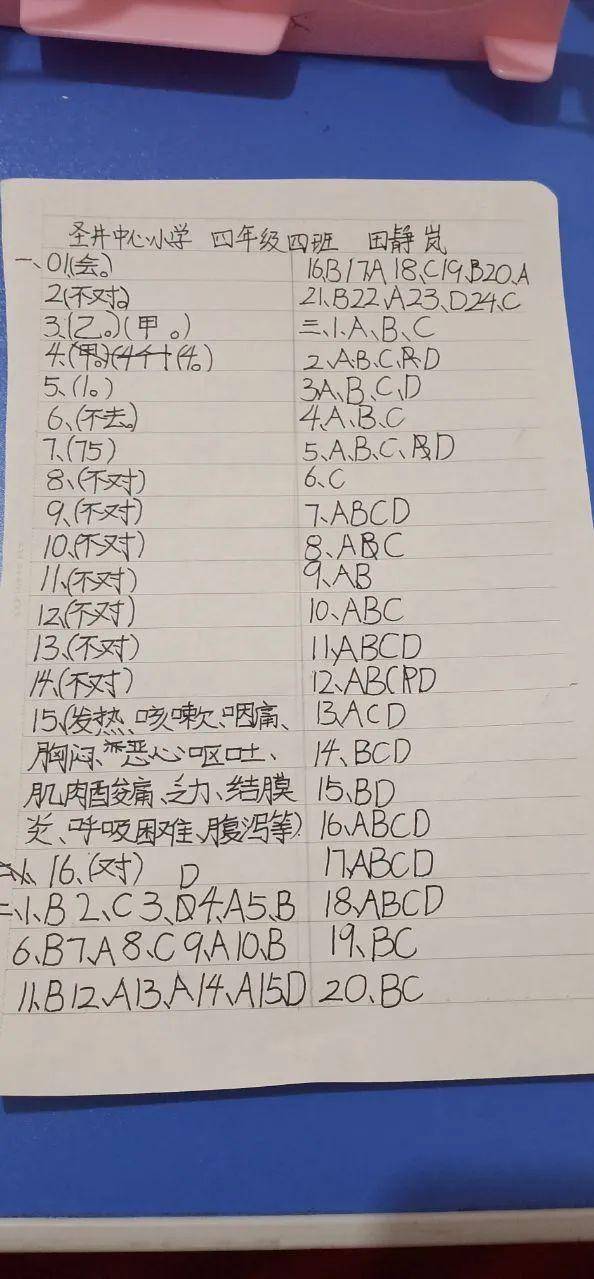 圣井中心小学 四年级四班 田静岚
一、01(会。)
2(不对。)
3、(乙。)(甲。)
4、(甲。)(4个)(4。)
5、(1。)
6、(不去。)
7、(75)
8、(不对)
9、(不对)
10、(不对)
11、(不对)
12、(不对)
13、(不对)
14、(不对)
15、(发热、咳嗽、咽痛、
胸闷、恶心呕吐、
肌肉酸痛、乏力、结膜
炎、呼吸困难、腹泻等)
16、(对) D
二、1、B 2、C 3、D 4、A 5、B
6、B 7、A 8、C 9、A 10、B
11、B 12、A 13、A 14、A 15、D
16、B 17、A 18、C 19、B 20、A
21、B 22、A 23、D 24、C
三、1、A、B、C
2、A、B、C、D
3A、B、C、D
4、A、B、C
5、A、B、C、D
6、C
7、ABCD
8、ABC
9、AB
10、ABC
11、ABCD
12、ABCD
13、ACD
14、BCD
15、BD
16、ABCD
17、ABCD
18、ABCD
19、BC
20、BC